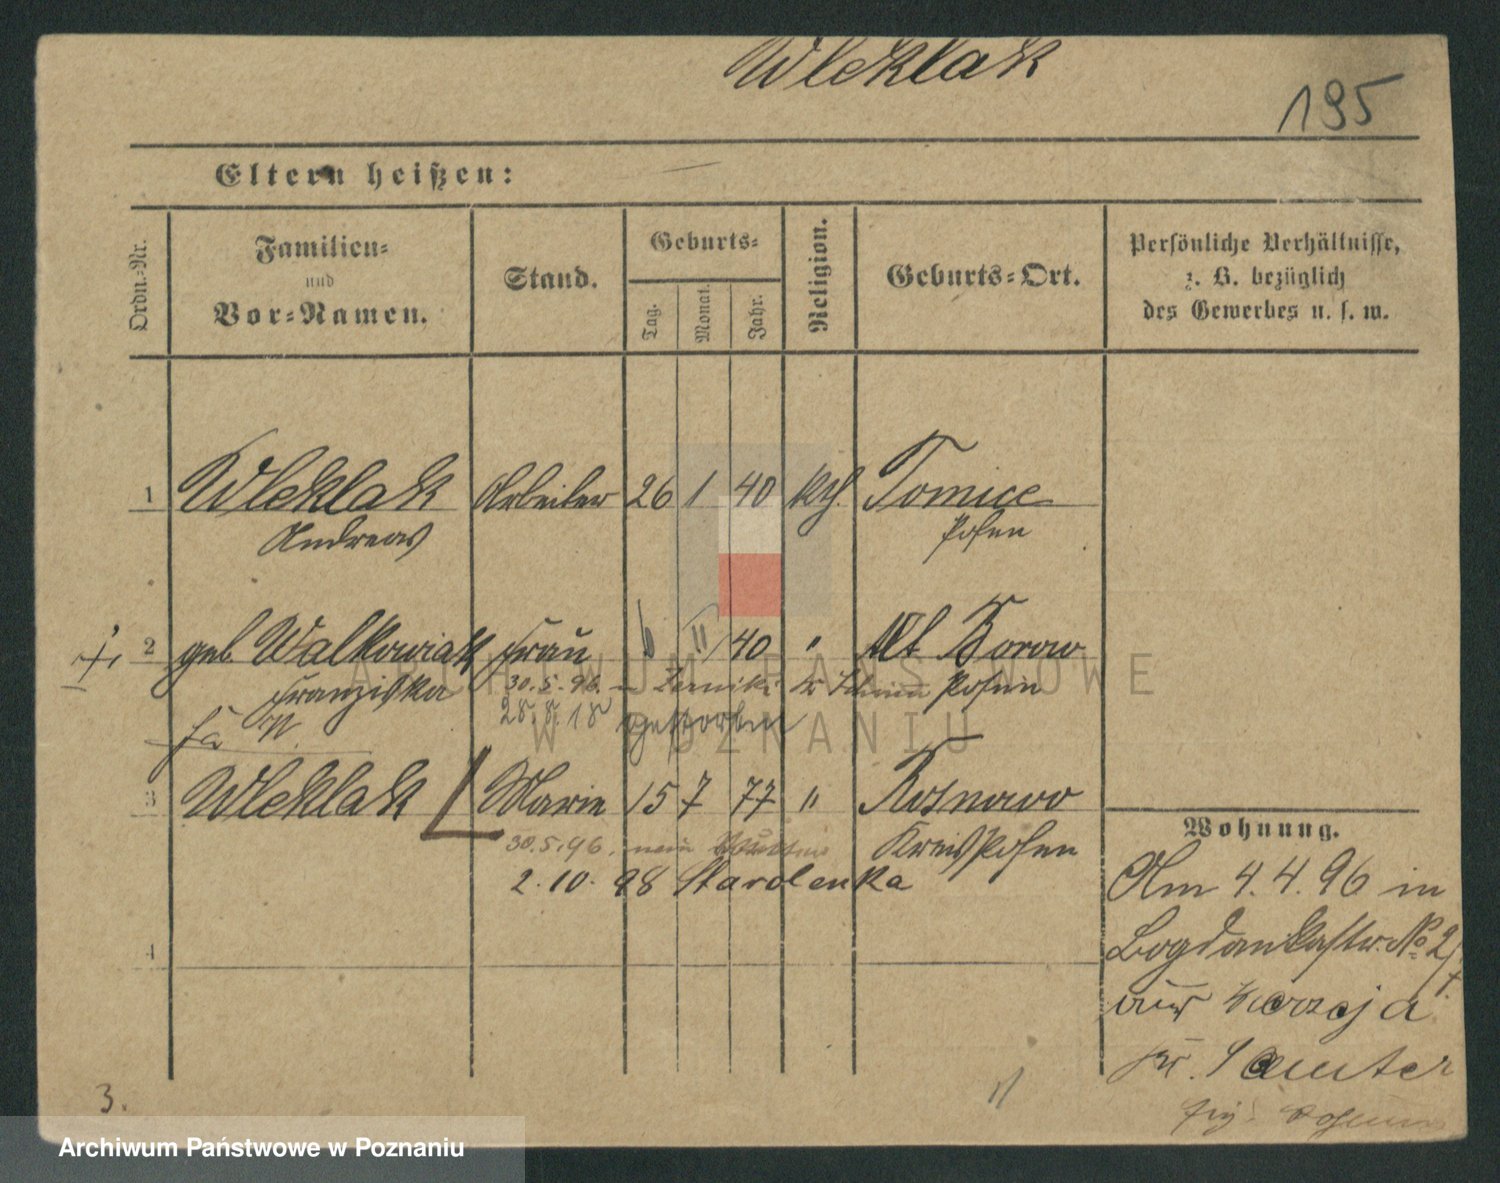 Wleklak
195
Eltern heißen:
Ordn.-Nr.
Familien-
und
Vor-Namen.
Stand.
Geburts-
Tag.
Monat.
Jahr.
Religion.
Geburts-Ort.
Persönliche Verhältnisse,
z. B. bezüglich
des Gewerbes u. s. w.
1 Wleklak Arbeiter 26 1 40 kth. Tomice
Andreas Posen
2 geb. Walkowiak Frau 6 II 40 " Alt Borowo
Franziska 30.5.96. Posen
28.8.18 gestorben
3 Wleklak Marie 15 7 77 " Rosnowo
30.5.96. Kreis Posen
2.10.98 Starolenka
4
Wohnung.
Am 4.4.96 in
Bogdankastr. No 2
aus
Kr. Samter
3.
ARCHIWUM PAŃSTWOWE
W POZNANIU
Archiwum Państwowe w Poznaniu